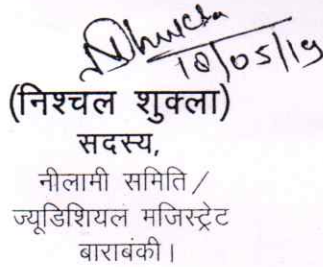 18/05/19
(निश्चल शुक्ला)
सदस्य,
नीलामी समिति /
ज्यूडिशियल मजिस्ट्रेट
बाराबंकी।